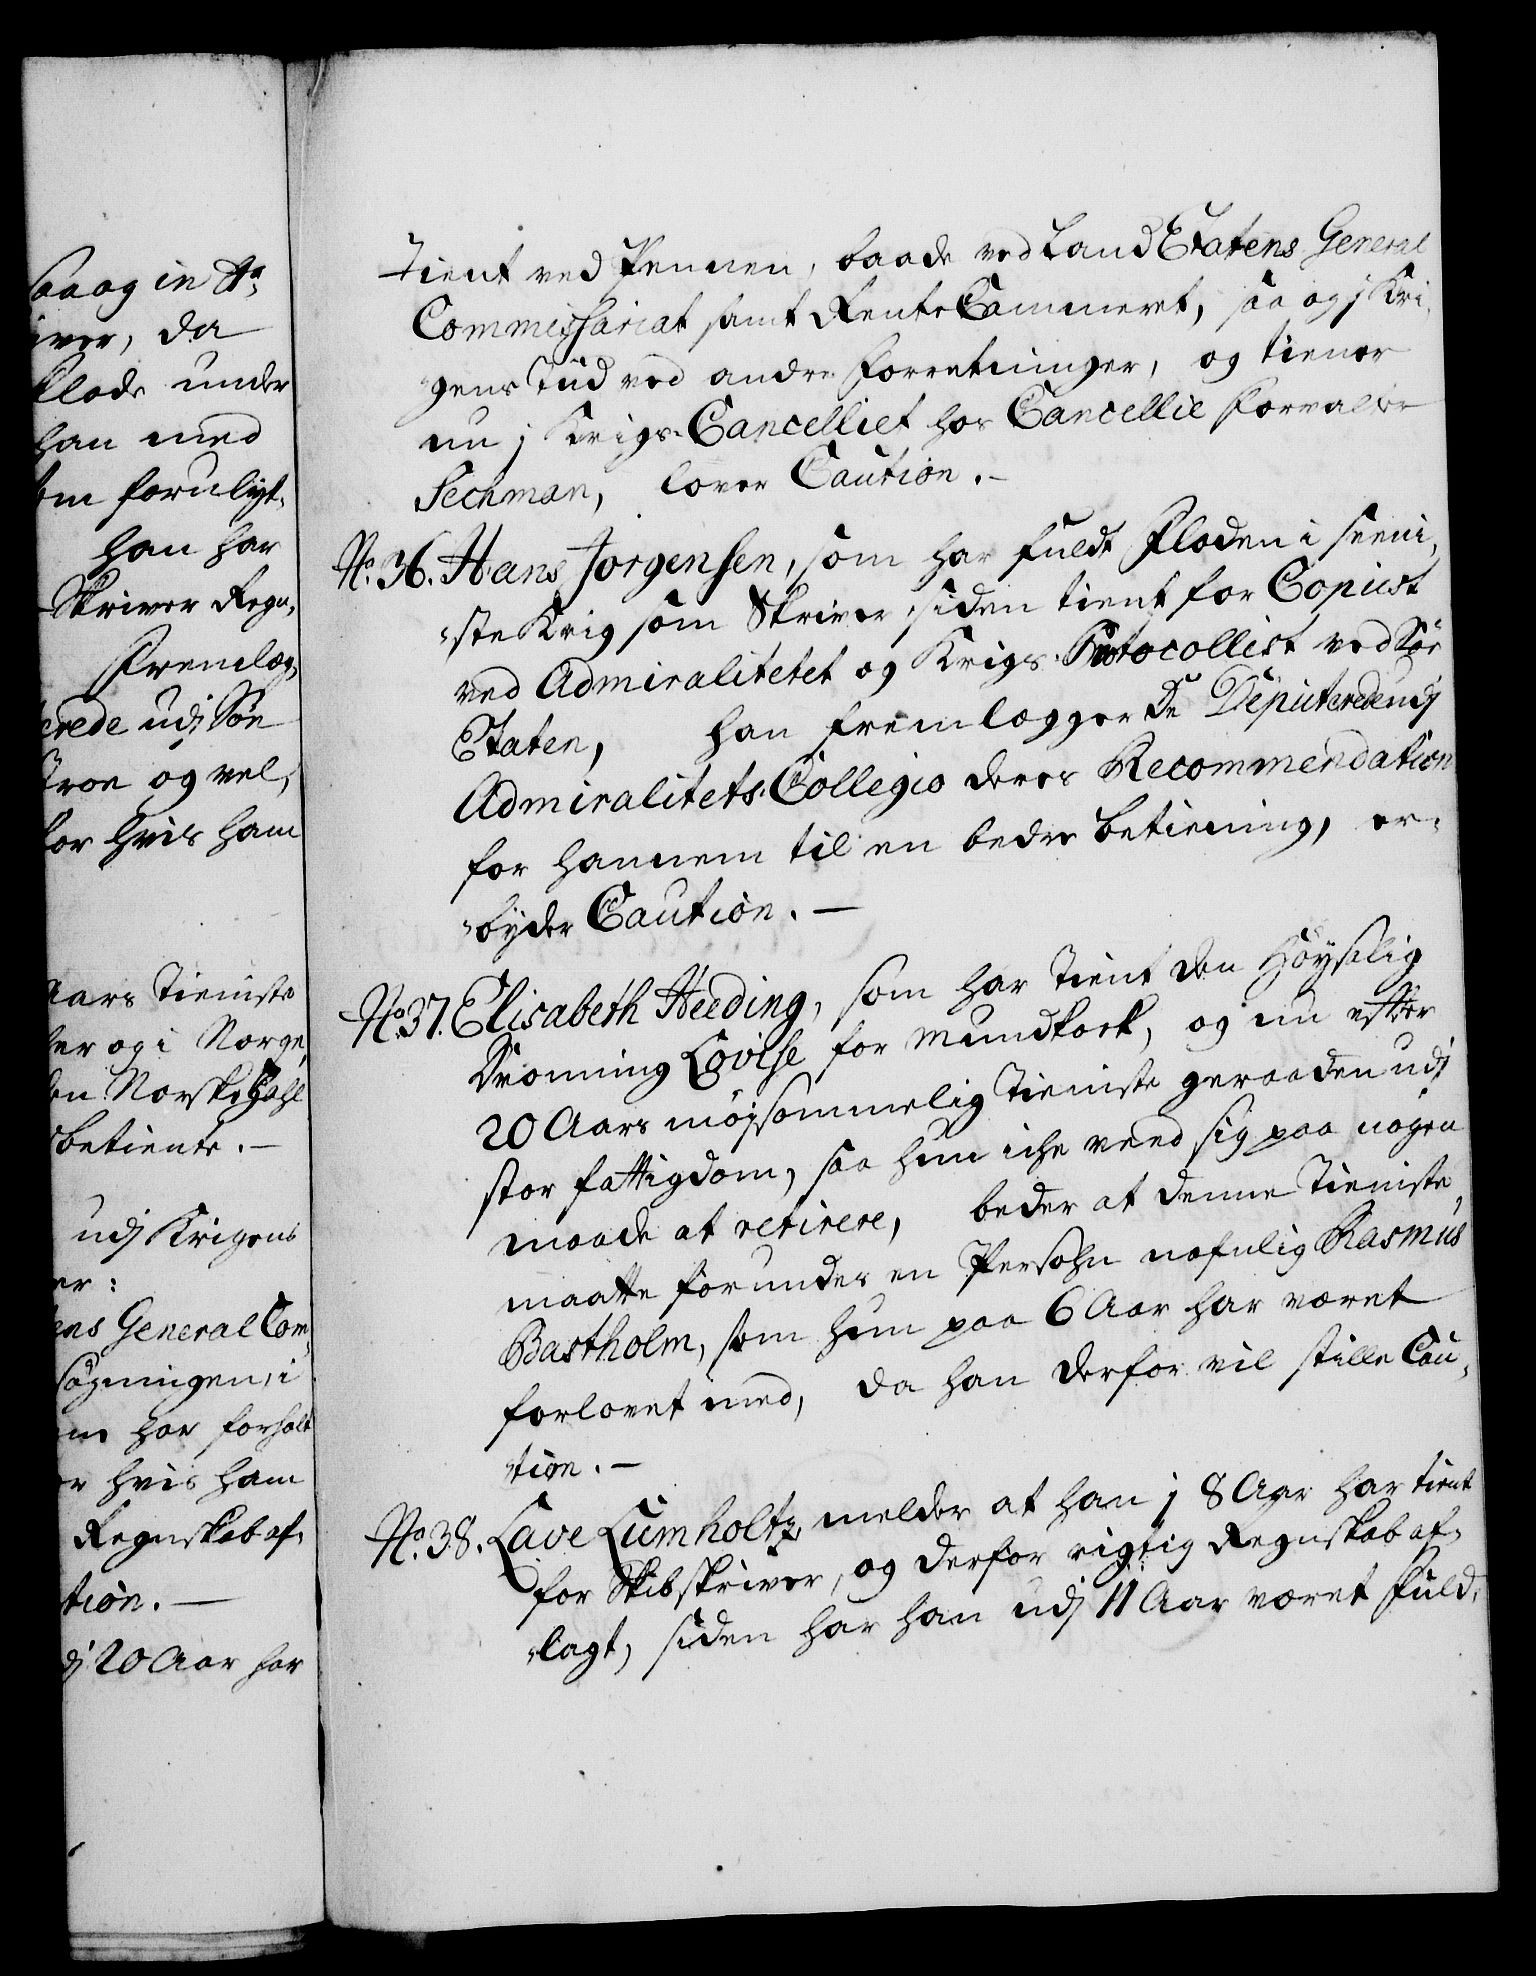 Saaog in Ao
iver, da
Flode under
han med
om foruligt,
han har
Skriver Regn,
Fremlæg,
erede udj Søe
Troe og vel,
for hvis ham
Aars Tieniste
er og i Norge,
en Norske Zahl
betiente. –
udj Krigens
er:
ens General Com,
søgningen, i
har forholt
er hvis ham
Regnskab af,
tion. –
dj 20 Aar har
tient ved Pennen, baade ved Land Etatens General
Commissariat samt Rente Cammeret, saa og j Kri,
gens Tiid ved andre Forretninger, og tiener
nu j Krigs-Cancelliet hos Cancellie Forvalter
Sechman, lover Caution. –
No. 36. Hans Jørgensen, som har fuldt Floden i seeni,
ste Krig som Skriver, siden tient for Copiist
ved Admiralitetet og Krigs-Protocollist ved Søe
Etaten, han fremlægger De Deputerede udj
Admiralitets-Collegio deres Recommendation
for hannem til en bedre betiening, er,
byder Caution. –
No. 37. Elisabeth Heeding, som har tient den Høysalig
Dronning Lovise for Mundkock, og nu efter
20 Aars møysommelig Tieniste geraaden udj
stor fattigdom, saa hun icke veed sig paa nogen
maade at retirere, beder at denne Tieniste
maatte forundes en Persohn nafnlig Rasmus
Bastholm, som hun paa 6 Aar har været
forlovet med, da han derfor vil stille Cau,
tion. –
No. 38. Lave Lumholtz, melder at han j 8 Aar har tient
for Skibskriver, og derfor rigtig Regnskab af,
lagt, siden har han udj 11 Aar været Fuld,